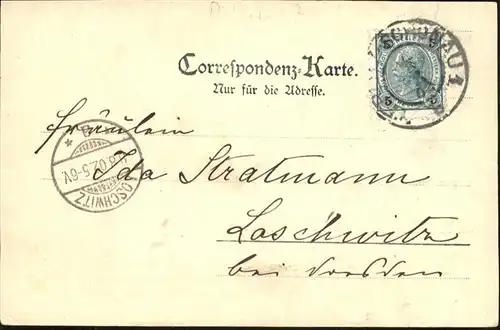 Correspondenz-Karte.
Nur für die Adresse.
SCHÖNAU 1
5 5
Fräulein
Ida Stratmann
Loschwitz
bei Dresden
.8.02.5-6V.
LOSCHWITZ